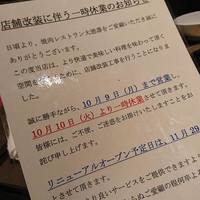 店舗改装に伴う一時休業のお知らせ
日頃より、焼肉レストラン大池園をご愛顧いただき誠に
ありがとうございます。
この度当店は、より快適で美味しい料理を味わって頂く
空間を
店舗改装工事を行うことになりま
した。
誠に勝手ながら、10月9日(月)まで営業し、
10月10日(火)より一時休業させて頂きます。
皆様には、ご不便、ご迷惑をお掛けいたしますことをお
詫び申し上げます。
リニューアルオープン予定日は、11月29
とさせて頂きます。
より良いサービスをご提供できますよ
らのご愛顧の程何卒よ